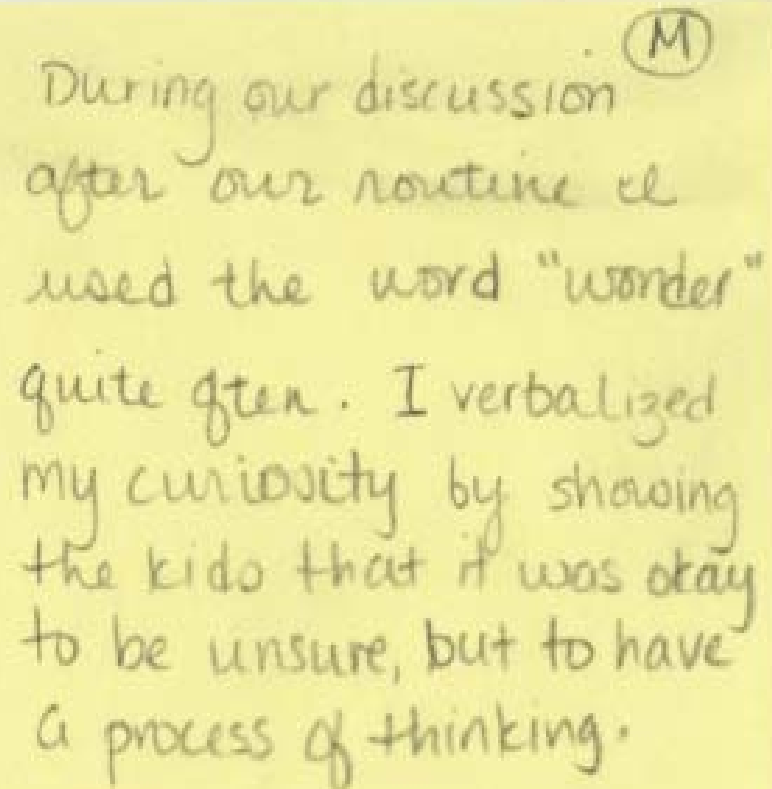 M
During our discussion
after our routine I
used the word "wonder"
quite often. I verbalized
my curiosity by showing
the kids that it was okay
to be unsure, but to have
a process of thinking.